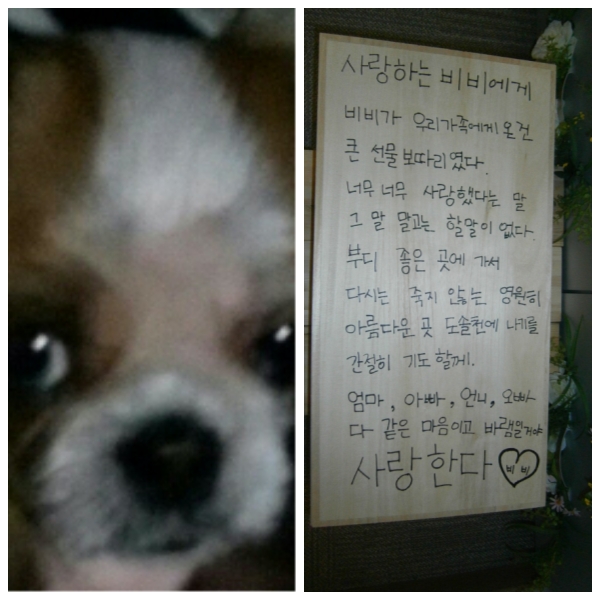 사랑하는 비비에게
비비가 우리가족에게 온건
큰 선물보따리였다.
너무 너무 사랑했다는 말
그 말 말고는 할말이 없다.
부디 좋은 곳에 가서
다시는 죽지 않는 영원히
아름다운 곳 도솔천에 나기를
간절히 기도할게.
엄마, 아빠, 언니, 오빠
다 같은 마음이고 바램일거야
사랑한다 비비